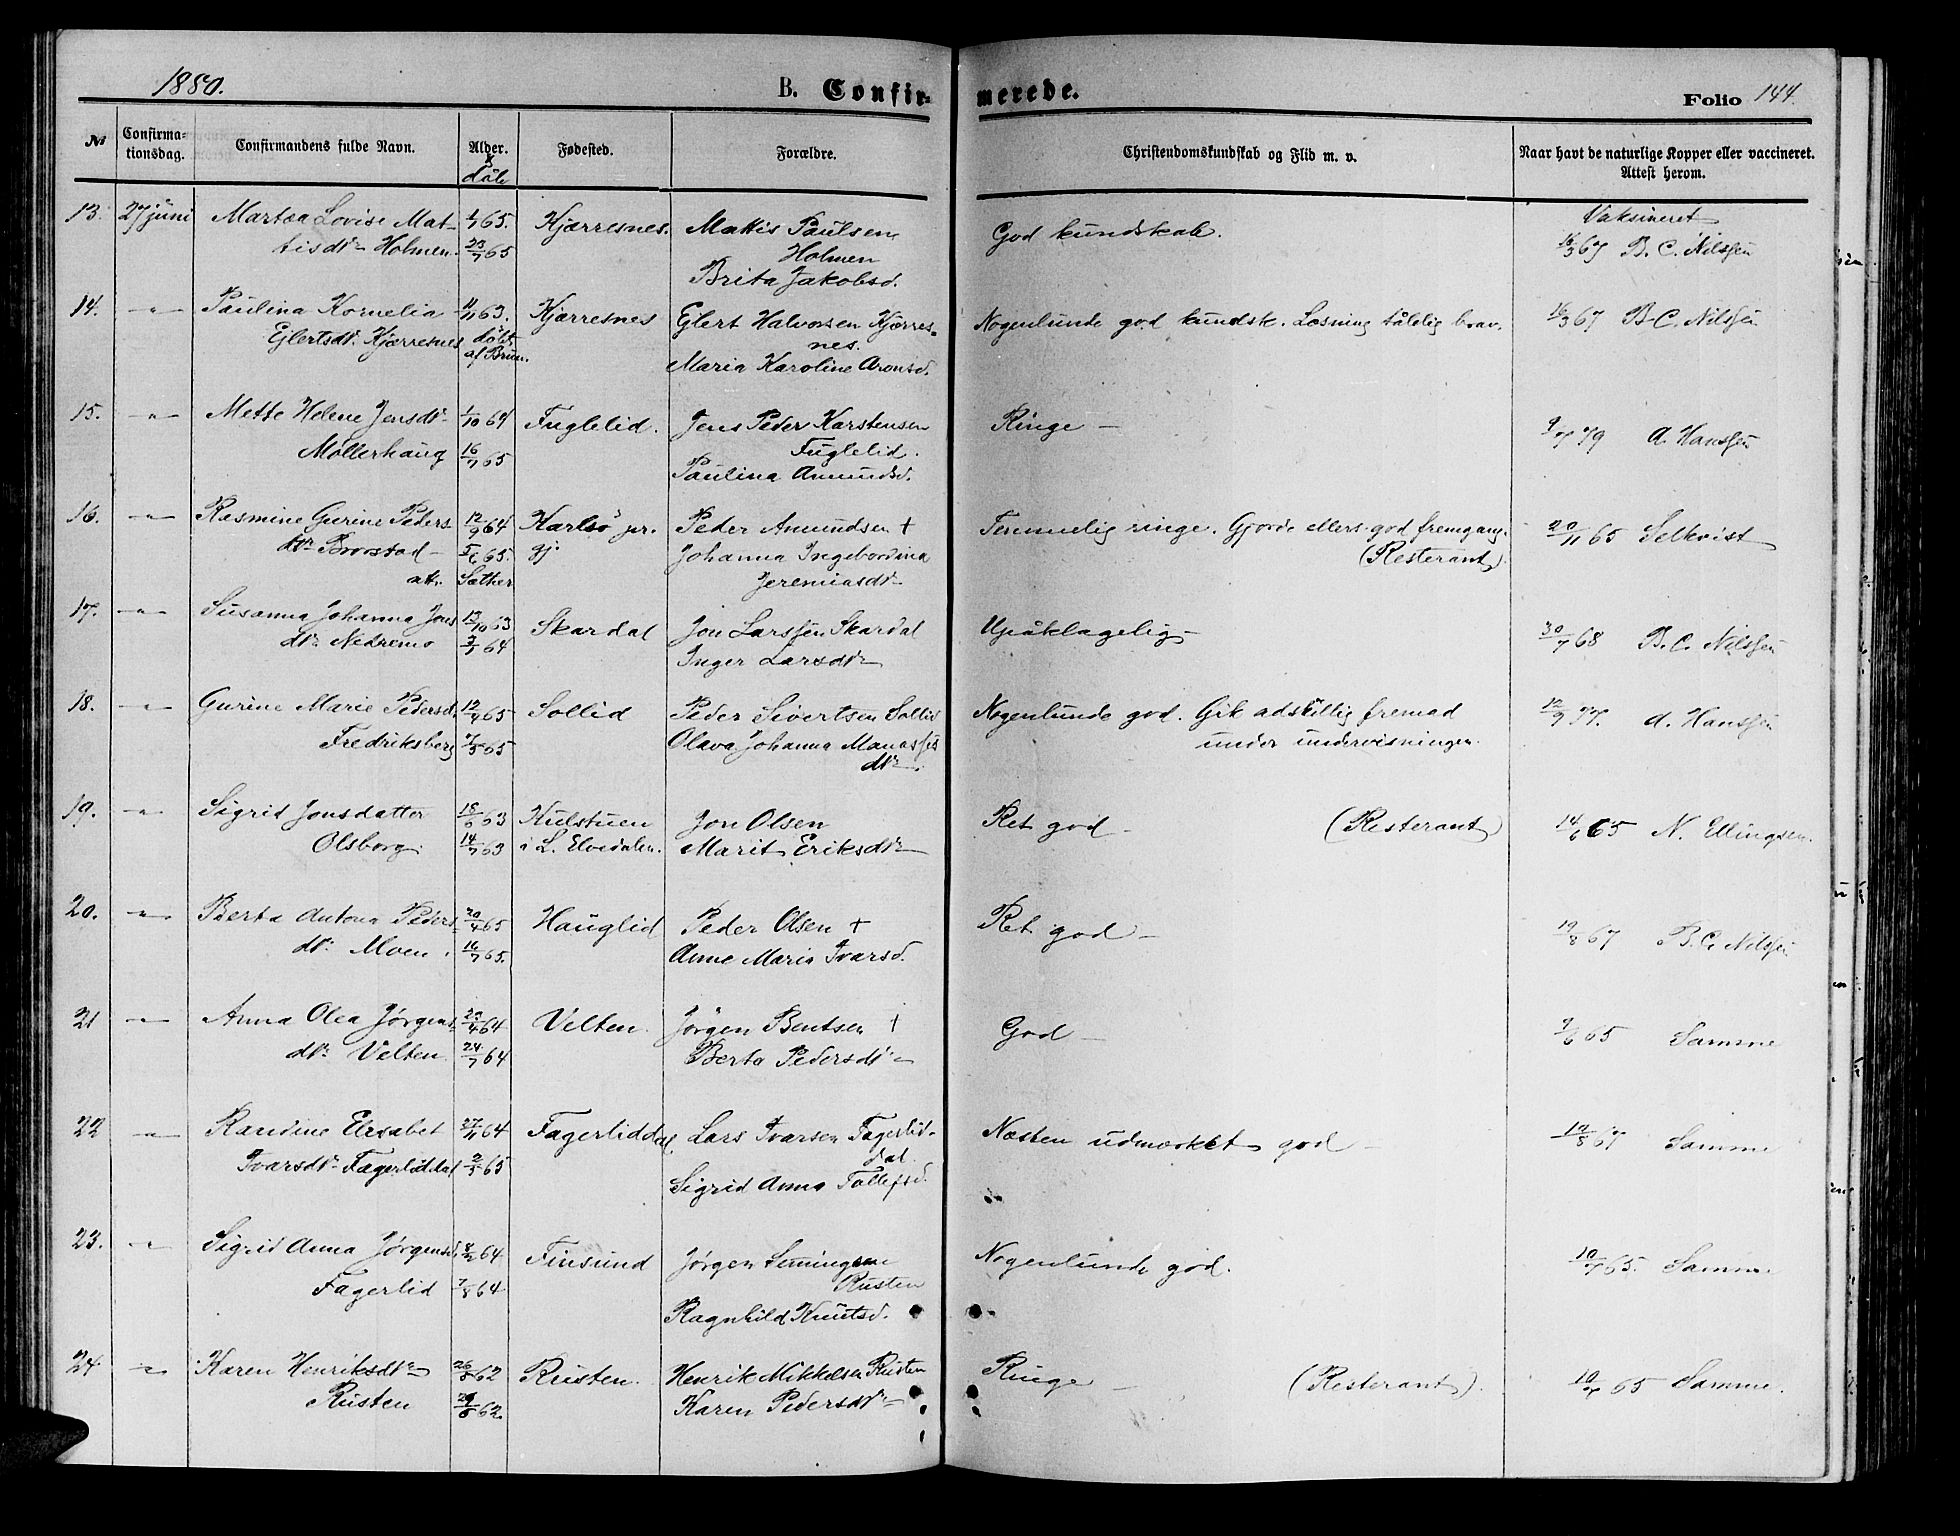 1880.
B. Confirmerede.
Folio 144.
No
Confirmationsdag.
Confirmandens fulde Navn.
Alder. & dåb
Fødested.
Forældre.
Christendomskundskab og Flid m. v.
Naar havt de naturlige Kopper eller vaccineret. Attest herom.
13. 27 juni Martea Lovise Mat- 1/7 65. Kjærresnes. Mattis Paulsen God kundskab. Vaksineret
tisdtr Holmen. 23/7 65 Holmen 16/3 67 B. C. Nilssen
Brita Jakobsd.
14. -"- Paulina Kornelia 11/11 63. Kjærresnes Eglert Halvorsen Kjærres- Nogenlunde god kundsk. Læsning tålelig brav. 16/3 67 B. C. Nilssen
Eglertsdtr. Kjærresnes døbt nes.
af Brun. Maria Karoline Aronsd.
15. -"- Mette Helene Jensdtr 1/10 64 Fuglelid. Jens Peder Karstensen Ringe — 9/7 79 A. Hanssen
Mollerhaug 16/7 65 Fuglelid.
Paulina Amundsd.
16. -"- Rasmine Gurine Peders 12/9 64 Karlsö pr. Peder Amundsen + Temmelig ringe. Gjorde ellers god fremgang. 20/11 65 Selkvist
dtr Brorstad 5/6 65. gj. Johanna Ingebordina (Resterant).
att. Sæther Jeremiasdtr
17. -"- Susanna Johanna Jons 13/10 63 Skardal Jon Larssen Skardal Upåklagelig 30/7 68 B. C. Nilssen
dtr Nedremo 3/7 64 Inger Larsdtr
18. -"- Gurine Marie Pedersd. 12/4 65 Sollid Peder Sivertsen Sollid Nogenlunde god. Gik adskillig fremad 12/9 77. A. Hanssen
Fredriksberg 7/5 65 Olava Johanna Manasses under undervisningen.
dtr.
19. -"- Sigrid Jonsdatter 18/6 63 Kulstuen Jon Olsen Ret god — (Resterant) 14/6 65 N. Ellingsen.
Olsborg. 14/7 63 i L. Elvedalen. Marit Eriksdtr
20. -"- Berta Antona Peders- 20/4 65 Hauglid Peder Olsen + Ret god — 19/8 67 B. C. Nilssen
dtr. Moen. 16/7 65. Anne Maria Ivarsd.
21 -"- Anna Olea Jørgens- 23/4 64 Velten. Jørgen Bentsen + God — 9/6 65 Samme
dtr. Velten 24/7 64 Berta Pedersdtr
22 -"- Randine Elisabet 27/11 64 Fagerliddal Lars Ivarsen Fagerlid- Næsten udmærket god — 19/8 67 Samme
Ivarsdtr Fagerliddal 2/5 65 dal.
Sigrid Anna Tollefsd.
23. -"- Sigrid Anna Jørgensd. 8/2 64 Finsund Jørgen Simingsen Nogenlunde god. 10/7 65. Samme
Fagerlid 7/8 64 Rusten
Ragnhild Knutsd.
24 -"- Karen Henriksdtr 26/5 62 Rusten. Henrik Mikkelsen Rusten Ringe — (Resterant). 10/7 65 Samme.
Rusten 29/6 62. Karen Pedersdtr